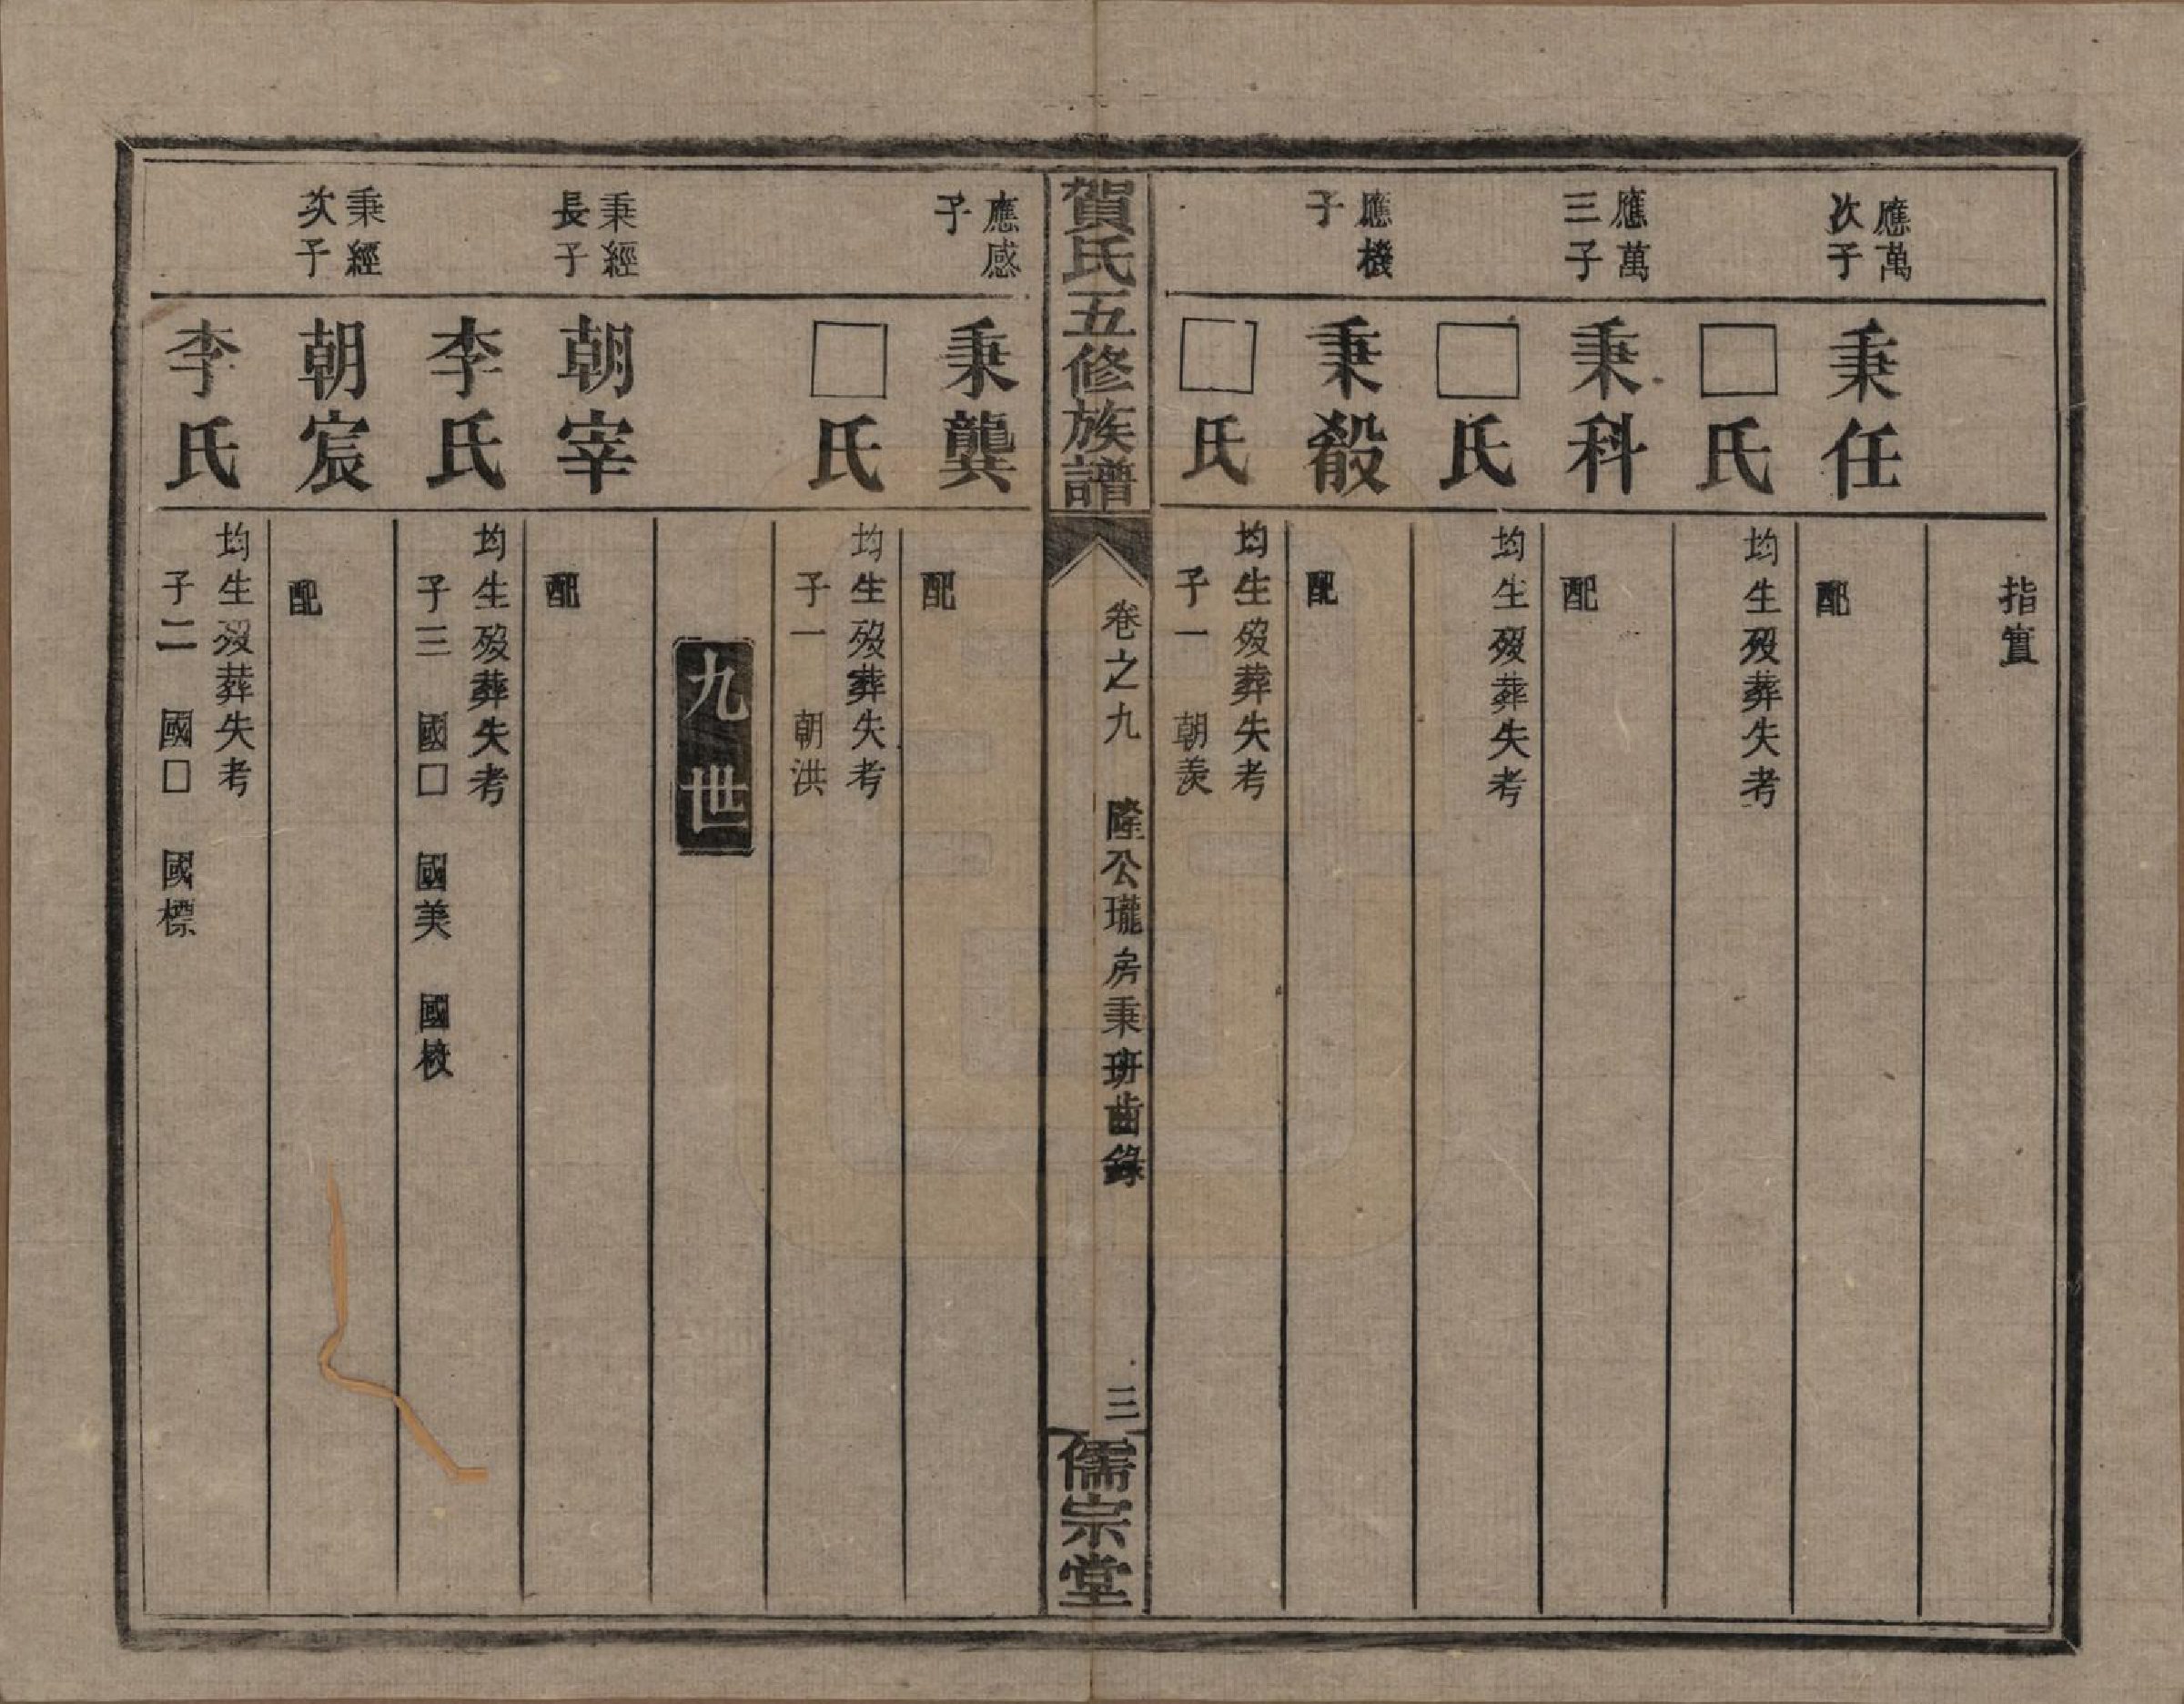 指實
應萬
次子
秉任
配
□氏
均生歿葬失考
應萬
三子
秉科
配
□氏
均生歿葬失考
應機
子
秉殽
配
□氏
均生歿葬失考
子一 朝羨
賀氏五修族譜
卷之九 隆公瓏房秉班齒錄
三
儒宗堂
應感
子
秉龔
配
□氏
均生歿葬失考
子一 朝洪
九世
秉經
長子
朝宰
配
李氏
均生歿葬失考
子三 國□ 國美 國校
秉經
次子
朝宸
配
李氏
均生歿葬失考
子二 國□ 國標